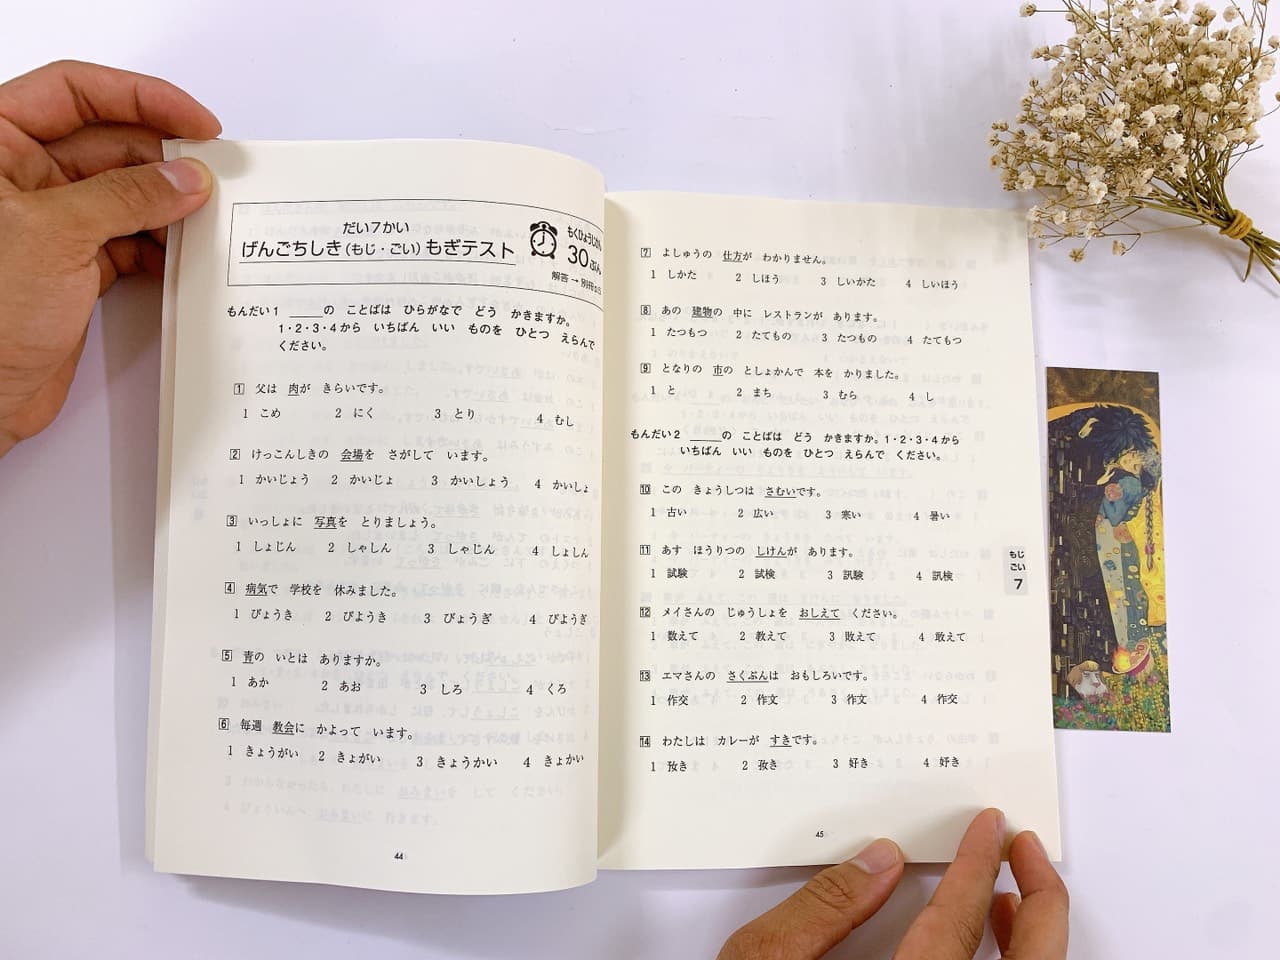 だい7かい
げんごちしき(もじ・ごい)もぎテスト
もくひょうじかん
30ぷん
解答 → 別冊
もんだい1 ＿＿＿の ことばは ひらがなで どう かきますか。
1・2・3・4から いちばん いい ものを ひとつ えらんで
ください。
1 父は 肉が きらいです。
1 こめ 2 にく 3 とり 4 むし
2 けっこんしきの 会場を さがして います。
1 かいじょう 2 かいじょ 3 かいしょう 4 かいしょ
3 いっしょに 写真を とりましょう。
1 しょじん 2 しゃしん 3 しゃじん 4 しょしん
4 病気で 学校を 休みました。
1 びょうき 2 びようき 3 びょうぎ 4 びようぎ
5 青の いとは ありますか。
1 あか 2 あお 3 しろ 4 くろ
6 毎週 教会に かよって います。
1 きょうがい 2 きょがい 3 きょうかい 4 きょかい
44
7 よしゅうの 仕方が わかりません。
1 しかた 2 しほう 3 しいかた 4 しいほう
8 あの 建物の 中に レストランが あります。
1 たつもつ 2 たてもの 3 たつもの 4 たてもつ
9 となりの 市の としょかんで 本を かりました。
1 と 2 まち 3 むら 4 し
もんだい2 ＿＿＿の ことばは どう かきますか。1・2・3・4から
いちばん いい ものを ひとつ えらんで ください。
10 この きょうしつは さむいです。
1 古い 2 広い 3 寒い 4 暑い
11 あす ほうりつの しけんが あります。
1 試験 2 試検 3 訊験 4 訊検
12 メイさんの じゅうしょを おしえて ください。
1 数えて 2 教えて 3 敗えて 4 敢えて
13 エマさんの さくぶんは おもしろいです。
1 作交 2 作文 3 作文 4 作交
14 わたしは カレーが すきです。
1 孜き 2 孜き 3 好き 4 好き
もじ
ごい
7
45